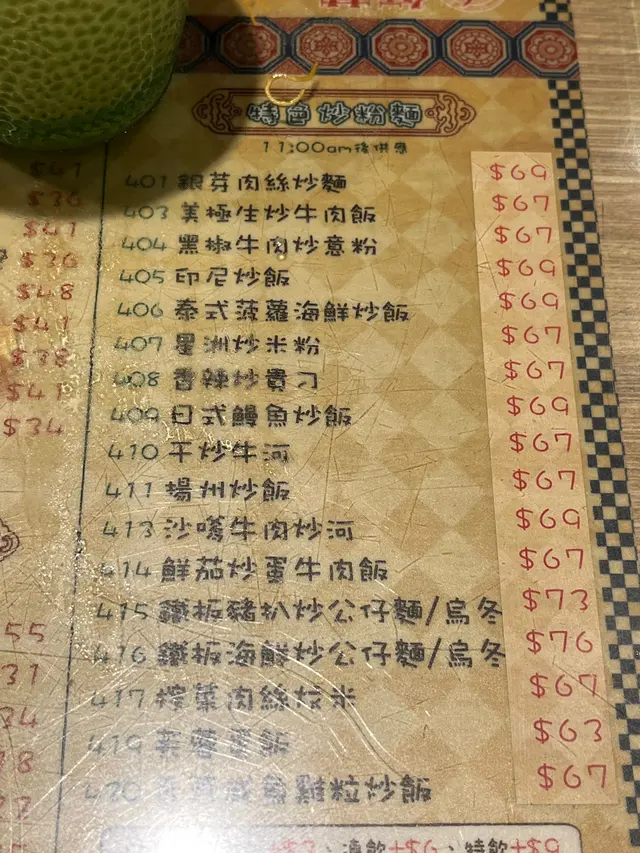 特色炒粉麵
11:00am後供應
$41
$36
$41
$36
$48
$41
$38
$41
$34
55
31
34
8
401 銀芽肉絲炒麵 $69
403 美極生炒牛肉飯 $67
404 黑椒牛肉炒意粉 $67
405 印尼炒飯 $69
406 泰式菠蘿海鮮炒飯 $69
407 星洲炒米粉 $67
408 香辣炒貴刁 $67
409 日式鰻魚炒飯 $69
410 干炒牛河 $67
411 揚州炒飯 $67
413 沙嗲牛肉炒河 $69
414 鮮茄炒蛋牛肉飯 $67
415 鐵板豬扒炒公仔麵/烏冬 $73
416 鐵板海鮮炒公仔麵/烏冬 $76
417 榨菜肉絲炆米 $67
419 芙蓉蛋飯 $63
420 咸魚雞粒炒飯 $67
+$3、凍飲+$6、特飲+$9